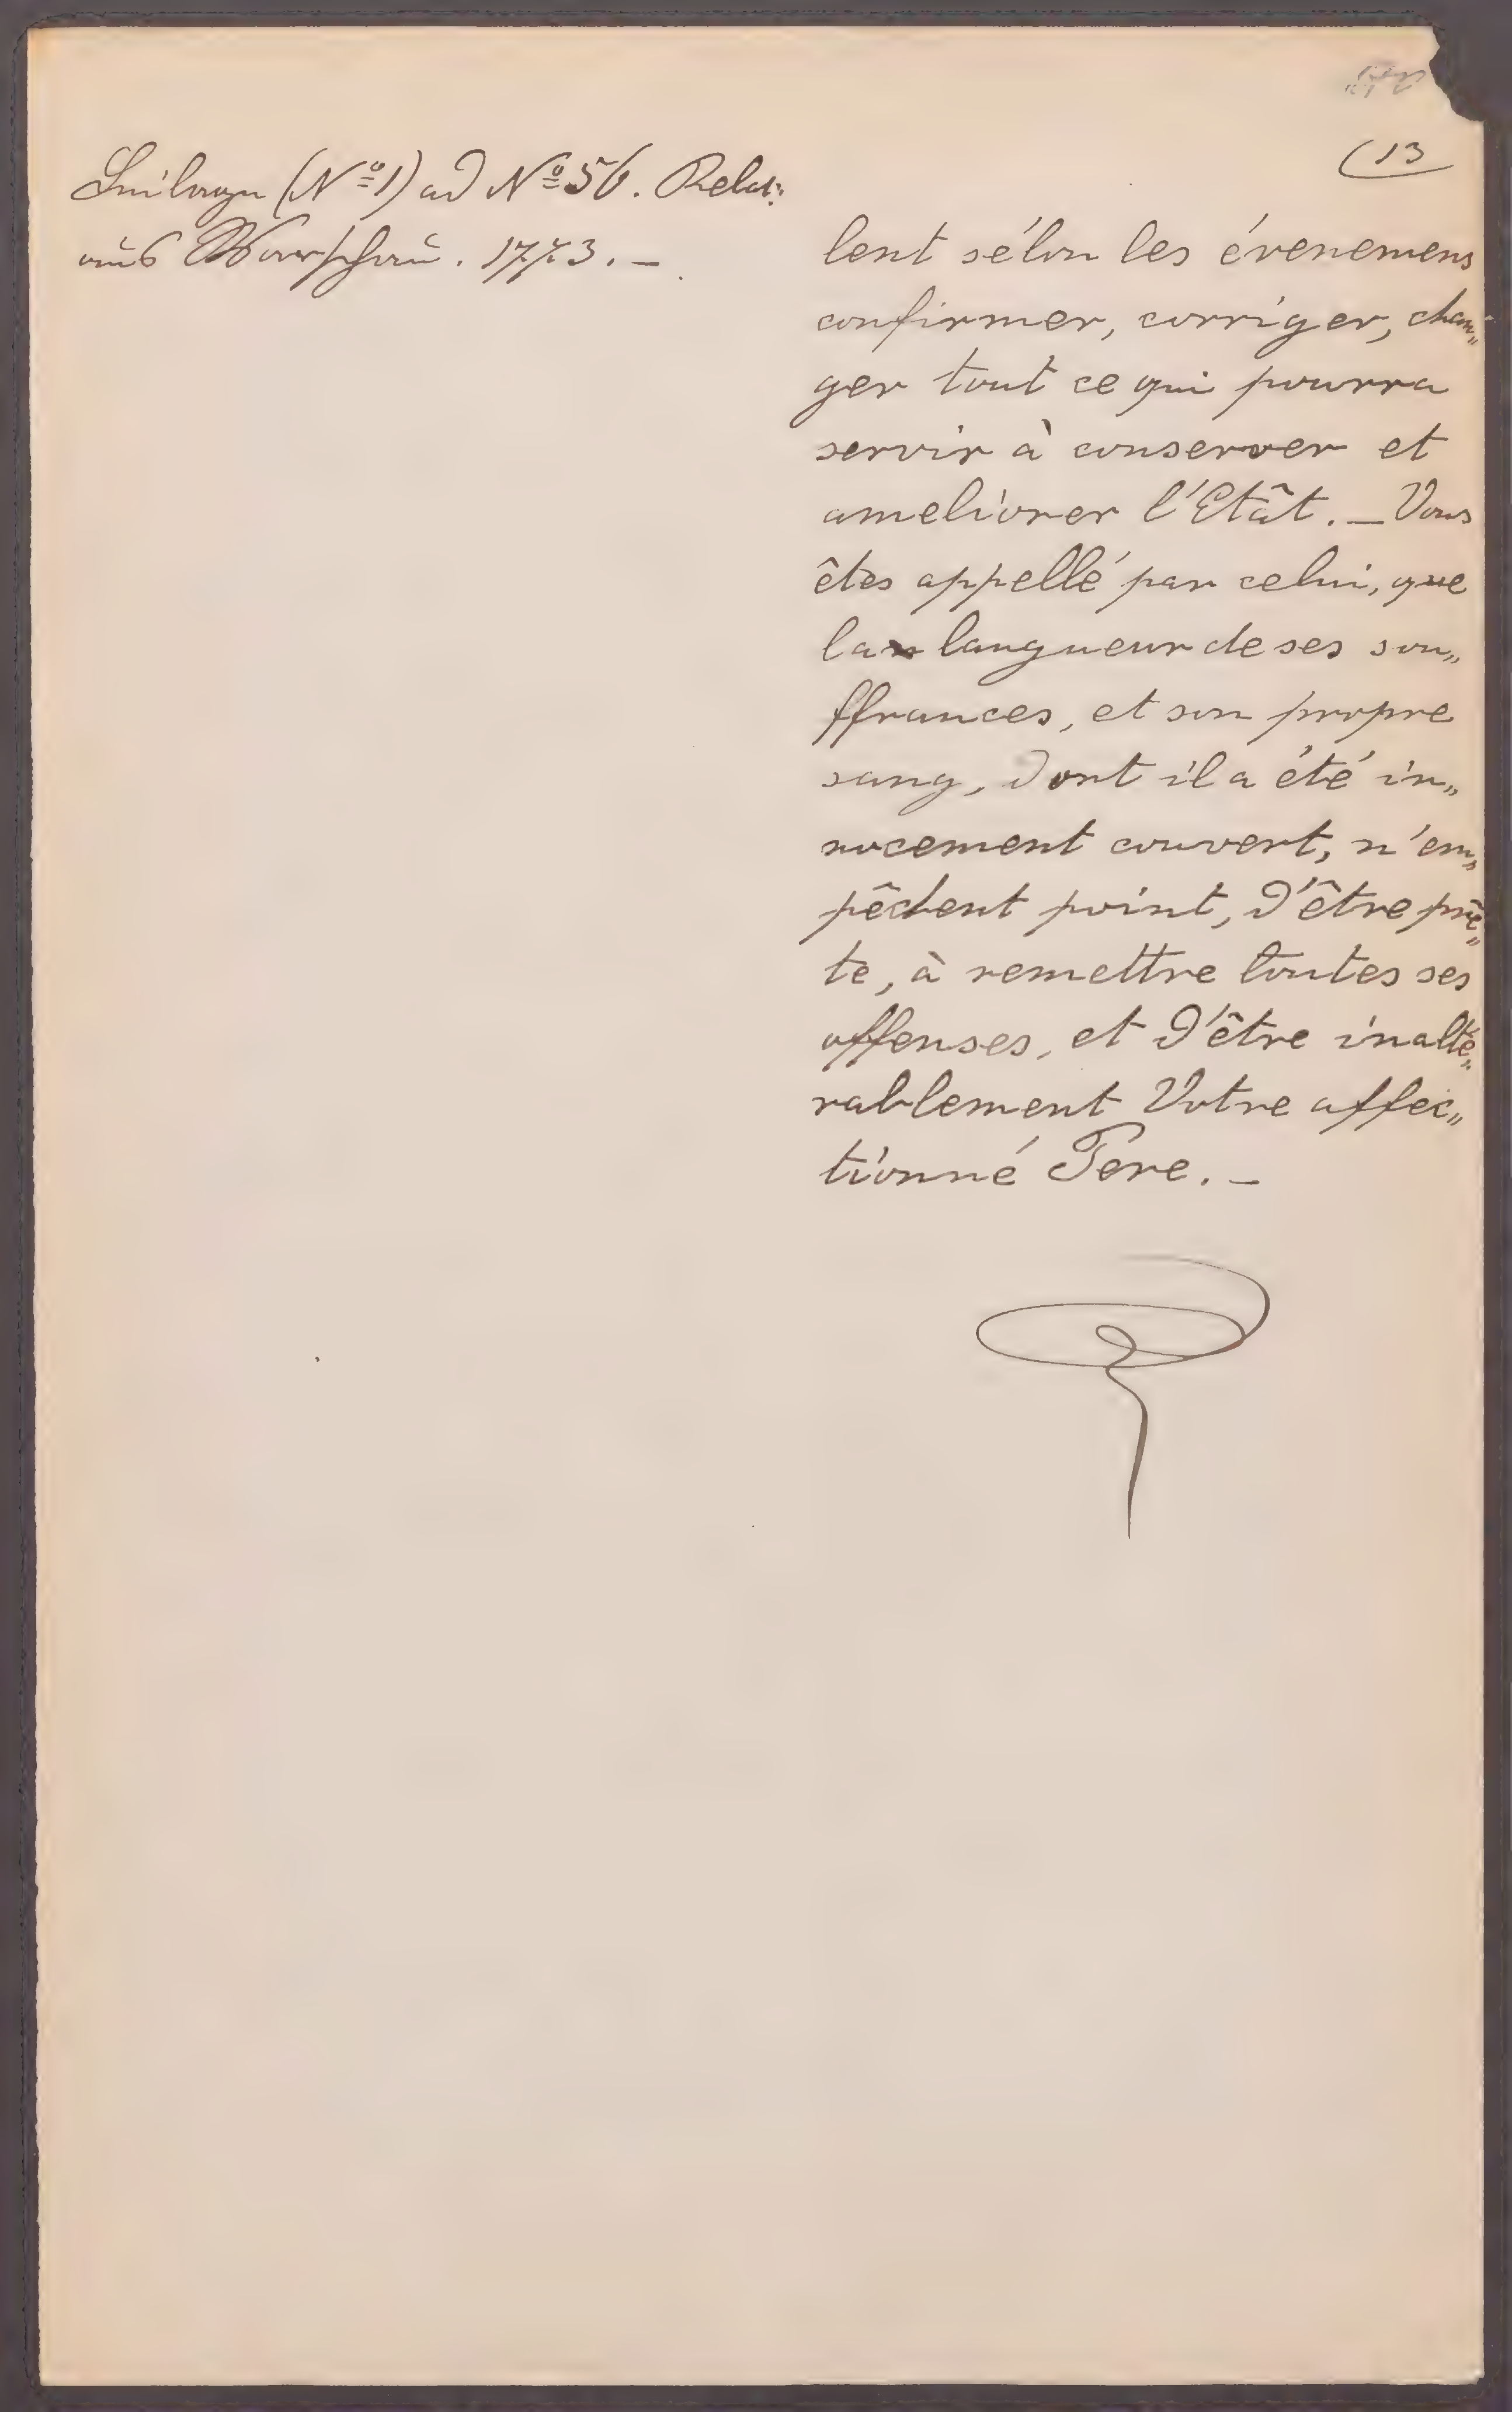 13
Beilage (Nº 1) ad Nº 56. Relat:
aus Warschau. 1773. —
lent sélon les évenemens
confirmer, corriger, chan„
ger tout ce qui pourra
servir à conserver et
ameliorer l'Etât. — Vous
êtes appellé par celui, que
la langueur de ses sou„
ffrances, et son propre
sang, dont il a été in„
nocement couvert, n'em„
pêchent point, d'être prê„
te, à remettre toutes ses
offenses, et d'être inalté„
rablement Votre affec„
tionné Pere. —